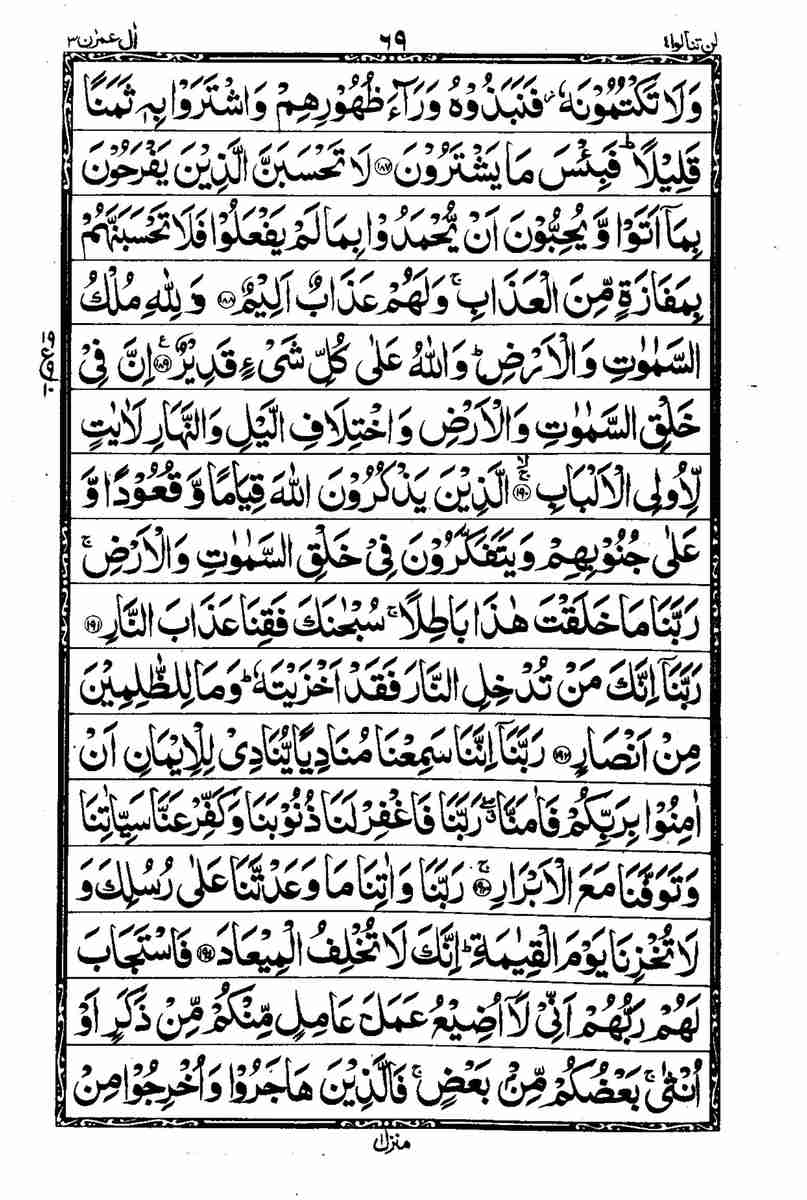 لن تنالوا ٤ ٦٩ اٰل عمرٰن ٣
وَلَا تَكْتُمُوْنَهٗ ۫ فَنَبَذُوْهُ وَرَآءَ ظُهُوْرِهِمْ وَاشْتَرَوْا بِهٖ ثَمَنًا
قَلِيْلًا ؕ فَبِئْسَ مَا يَشْتَرُوْنَ ۝۱۸۷ لَا تَحْسَبَنَّ الَّذِيْنَ يَفْرَحُوْنَ
بِمَاۤ اَتَوْا وَّيُحِبُّوْنَ اَنْ يُّحْمَدُوْا بِمَا لَمْ يَفْعَلُوْا فَلَا تَحْسَبَنَّهُمْ
بِمَفَازَةٍ مِّنَ الْعَذَابِ ۚ وَلَهُمْ عَذَابٌ اَلِيْمٌ ۝۱۸۸ وَلِلّٰهِ مُلْكُ
السَّمٰوٰتِ وَالْاَرْضِ ؕ وَاللّٰهُ عَلٰى كُلِّ شَيْءٍ قَدِيْرٌ ۝۱۸۹ ع اِنَّ فِيْ
خَلْقِ السَّمٰوٰتِ وَالْاَرْضِ وَاخْتِلَافِ الَّيْلِ وَالنَّهَارِ لَاٰيٰتٍ
لِّاُولِي الْاَلْبَابِ ۝۱۹۰ۚۙ الَّذِيْنَ يَذْكُرُوْنَ اللّٰهَ قِيَامًا وَّقُعُوْدًا وَّ
عَلٰى جُنُوْبِهِمْ وَيَتَفَكَّرُوْنَ فِيْ خَلْقِ السَّمٰوٰتِ وَالْاَرْضِ ۚ
رَبَّنَا مَا خَلَقْتَ هٰذَا بَاطِلًا ۚ سُبْحٰنَكَ فَقِنَا عَذَابَ النَّارِ ۝۱۹۱
رَبَّنَاۤ اِنَّكَ مَنْ تُدْخِلِ النَّارَ فَقَدْ اَخْزَيْتَهٗ ؕ وَمَا لِلظّٰلِمِيْنَ
مِنْ اَنْصَارٍ ۝۱۹۲ رَبَّنَاۤ اِنَّنَا سَمِعْنَا مُنَادِيًا يُّنَادِيْ لِلْاِيْمَانِ اَنْ
اٰمِنُوْا بِرَبِّكُمْ فَاٰمَنَّا ۖ ۗ رَبَّنَا فَاغْفِرْ لَنَا ذُنُوْبَنَا وَكَفِّرْ عَنَّا سَيِّاٰتِنَا
وَتَوَفَّنَا مَعَ الْاَبْرَارِ ۝۱۹۳ۚ رَبَّنَا وَاٰتِنَا مَا وَعَدْتَّنَا عَلٰى رُسُلِكَ وَ
لَا تُخْزِنَا يَوْمَ الْقِيٰمَةِ ؕ اِنَّكَ لَا تُخْلِفُ الْمِيْعَادَ ۝۱۹۴ فَاسْتَجَابَ
لَهُمْ رَبُّهُمْ اَنِّيْ لَاۤ اُضِيْعُ عَمَلَ عَامِلٍ مِّنْكُمْ مِّنْ ذَكَرٍ اَوْ
اُنْثٰى ۚ بَعْضُكُمْ مِّنْۢ بَعْضٍ ۚ فَالَّذِيْنَ هَاجَرُوْا وَاُخْرِجُوْا مِنْ
منزل ١